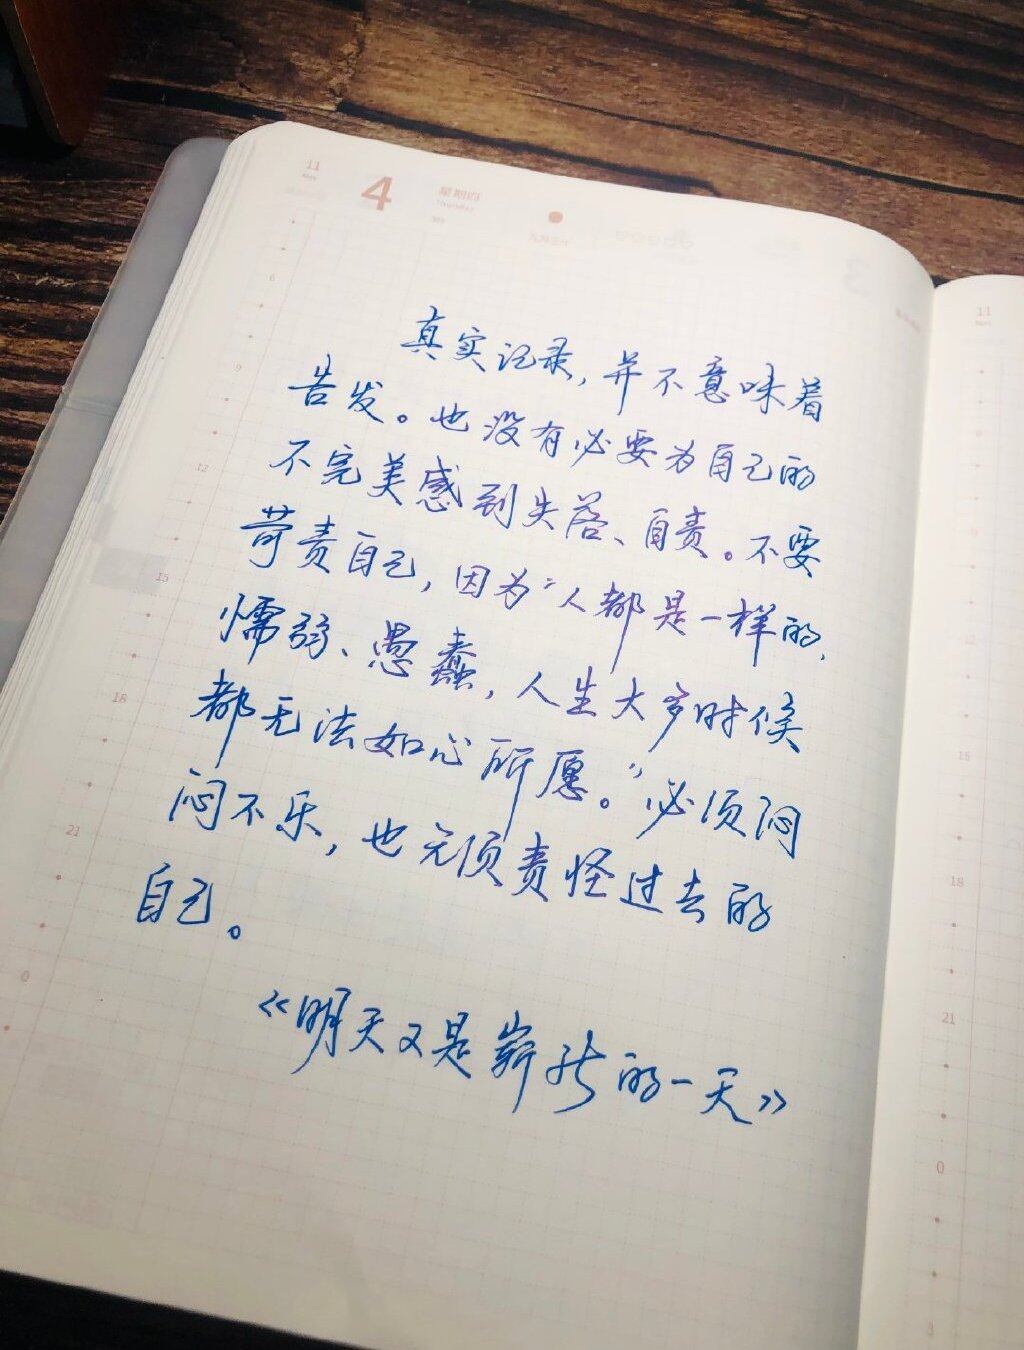 11
4
星期四
Thursday
真实记录，并不意味着
告发。也没有必要为自己的
不完美感到失落、自责。不要
苛责自己，因为“人都是一样的，
懦弱、愚蠢，人生大多时候
都无法如心所愿。”必须闷
闷不乐，也无须责怪过去的
自己。
《明天又是崭新的一天》
6
9
12
15
18
21
0
11
15
18
21
0
3